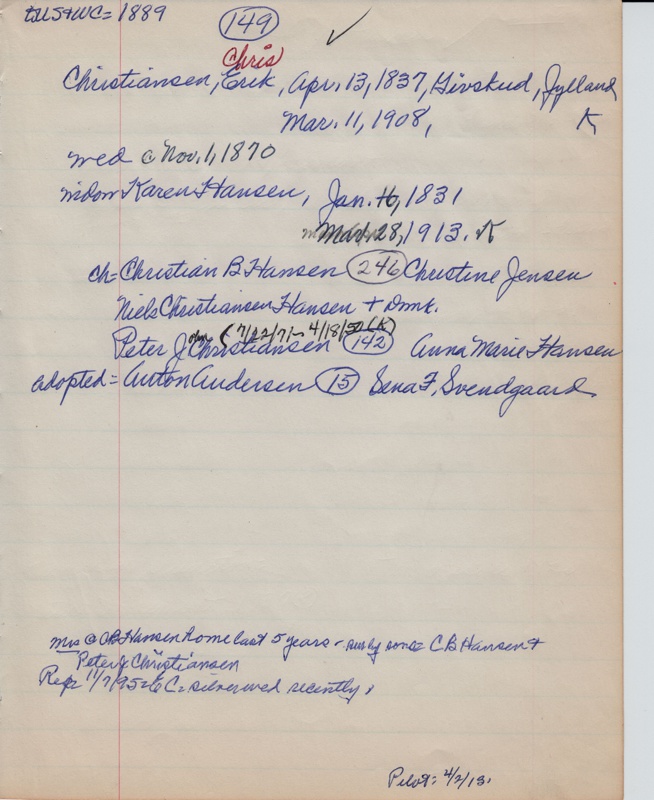 to US + WC = 1889
149
Chris
Christiansen, Erik, Apr. 13, 1837, Givskud, Jylland
Mar. 11, 1908, K
wed @ Nov. 1, 1870
widow Karen Hansen, Jan. 16, 1831
Mar. 28, 1913. K
ch = Christian B Hansen 246 Christine Jensen
Niels Christiansen Hansen + Dmk.
Peter John Christiansen (7/22/71 - 4/18/50 (K) 142 Anna Marie Hansen
adopted = Anton Andersen 15 Sena F, Svendgaard
Mrs @ CB Hansen home last 5 years - surv by sons C B Hansen +
Peter J Christiansen
Rep 11/7/95 = E C = silver wed recently.
Pilot: 4/2/13.